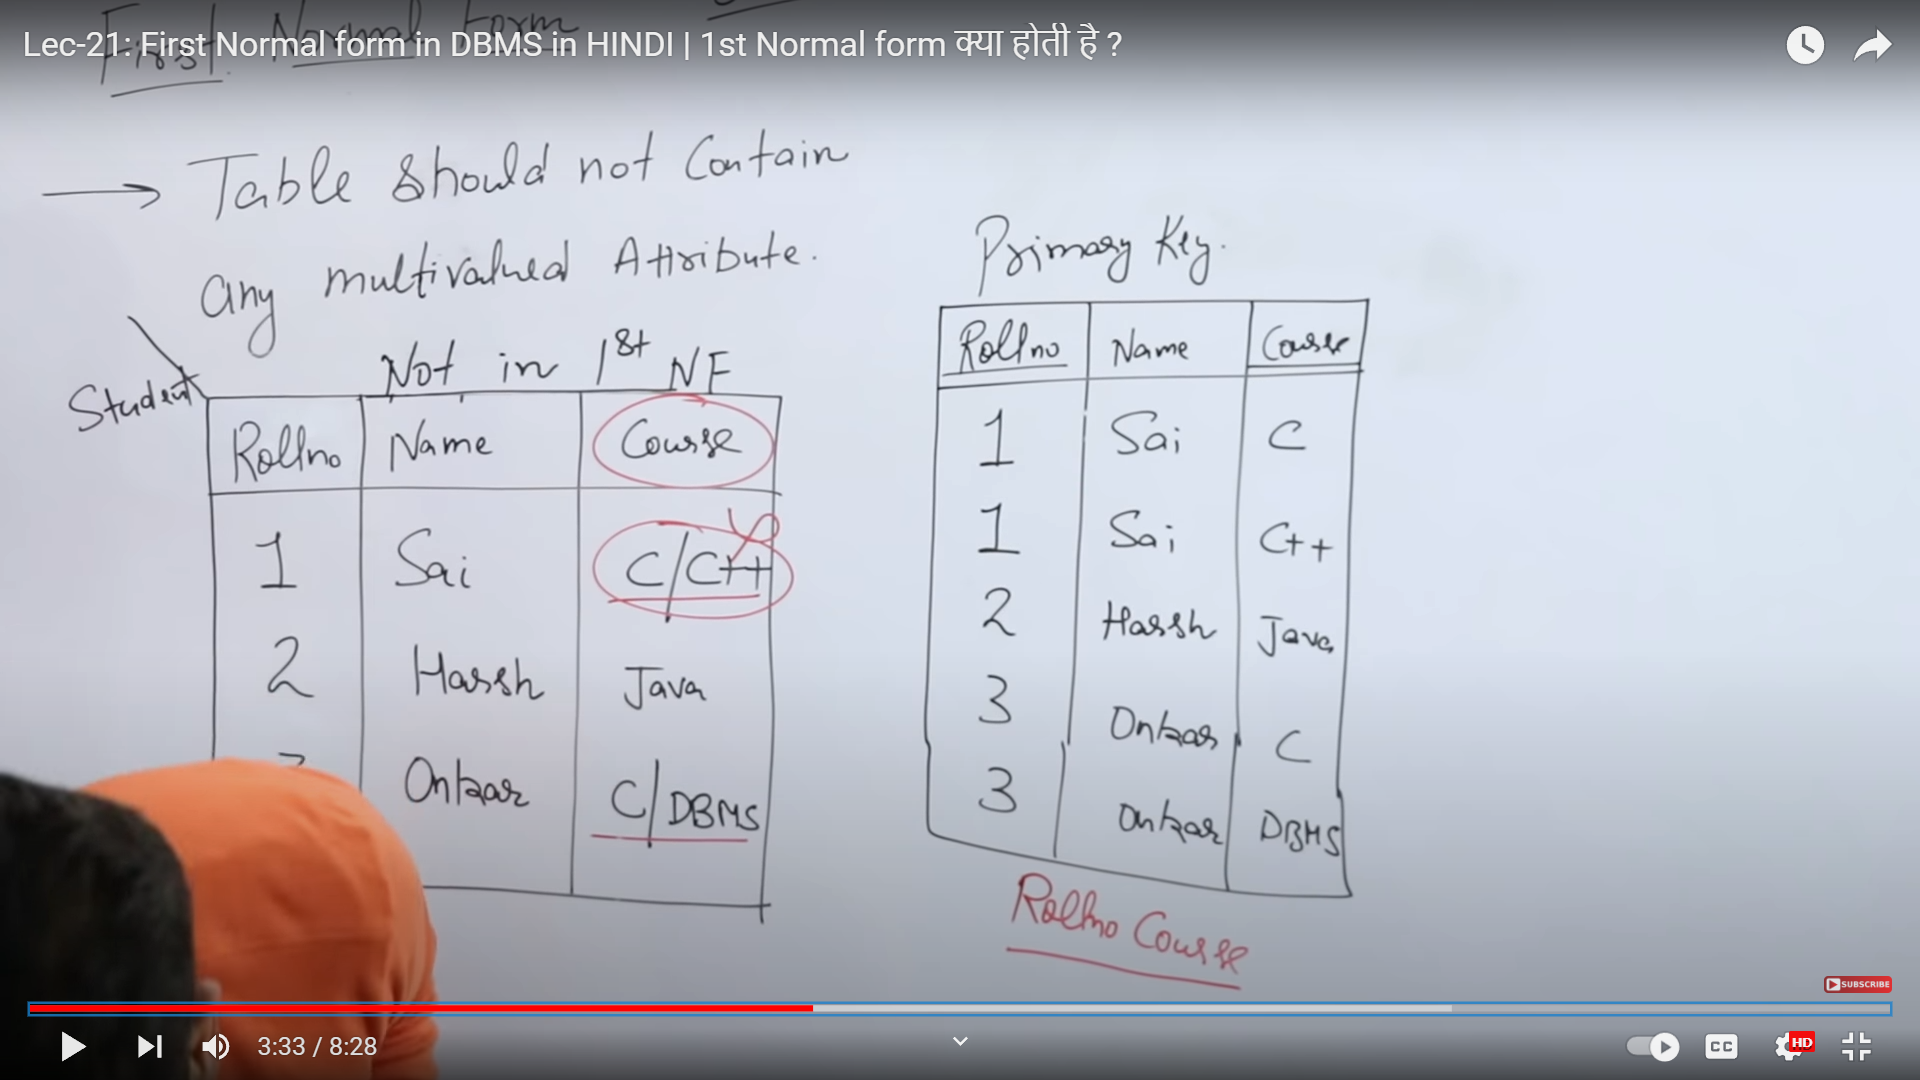 Lec-21: First Normal form in DBMS in HINDI | 1st Normal form क्या होती है ?
First Normal Form
→ Table should not Contain
any multivalued Attribute.
Not in 1st NF
Student
Rollno Name Course
1 Sai C/C++
2 Harsh Java
3 Onkar C/DBMS
Primary Key.
Rollno Name Course
1 Sai C
1 Sai C++
2 Harsh Java
3 Onkar C
3 Onkar DBMS
Rollno Course
SUBSCRIBE
3:33 / 8:28
CC
HD